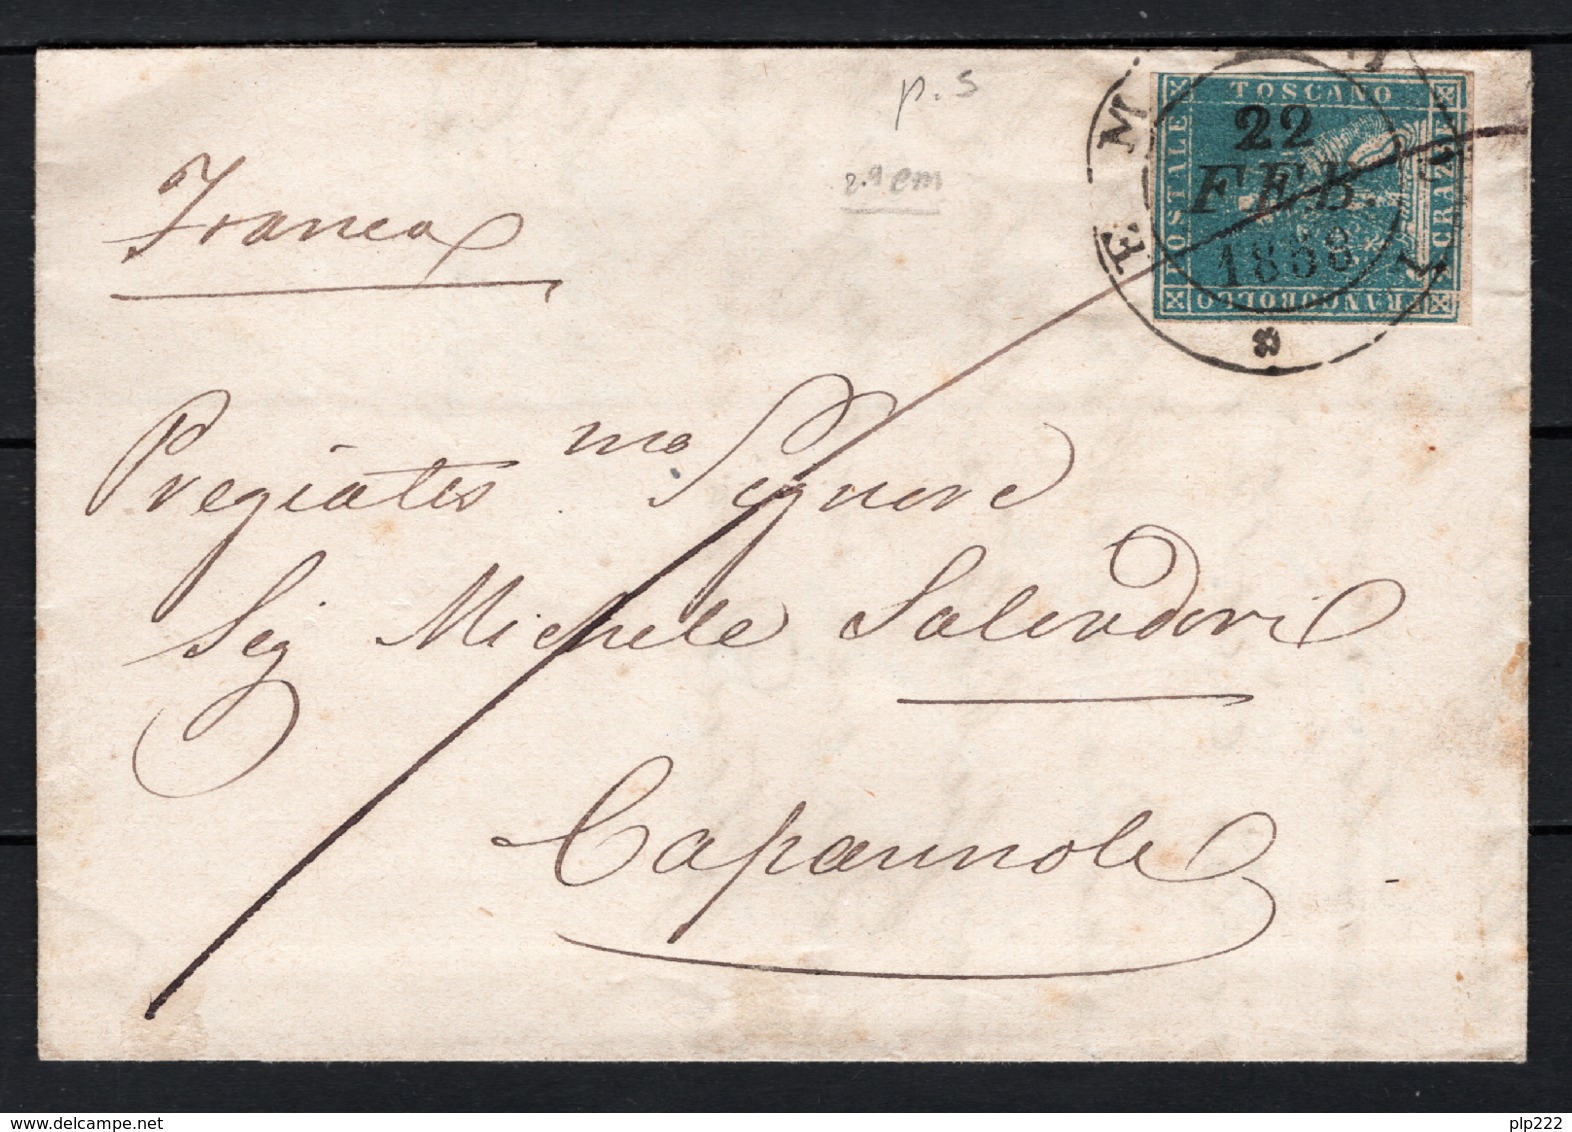 p. s
2.9 em
Franca
TOSCANO
POSTALE
CRAZIE
FRANCOBOLLO
EMPOLI
22
FEB.
1858
Pregiatis.mo Signore
Sig Michele Salvadori
Capannole
delcampe.net
plp222